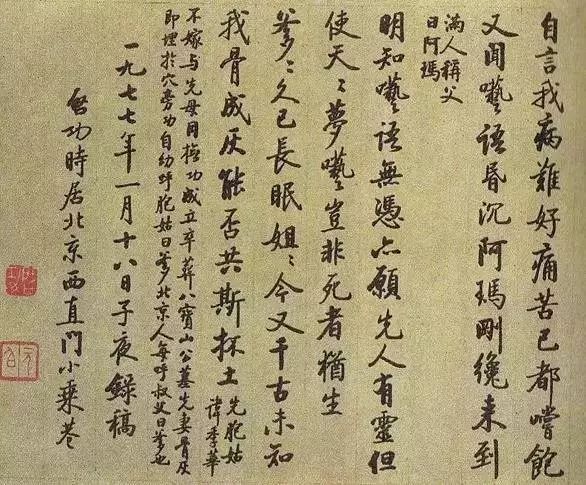 自言我病難好痛苦已都嚐飽
又聞囈語昏沉阿瑪剛纔来到
滿人稱父
曰阿瑪
明知囈語無憑亦願先人有靈但
使天〻夢囈豈非死者猶生
爹〻久已長眠姐〻今又千古未知
我骨成灰能否共斯抔土
先胞姑
諱季華
不嫁与先母同撫功成立卒葬八寶山公墓先妻骨灰
即埋於穴旁功自幼呼胞姑曰爹北京人每呼叔父曰爹也
一九七七年一月十八日子夜錄稿
啓功時居北京西直門小乘巷